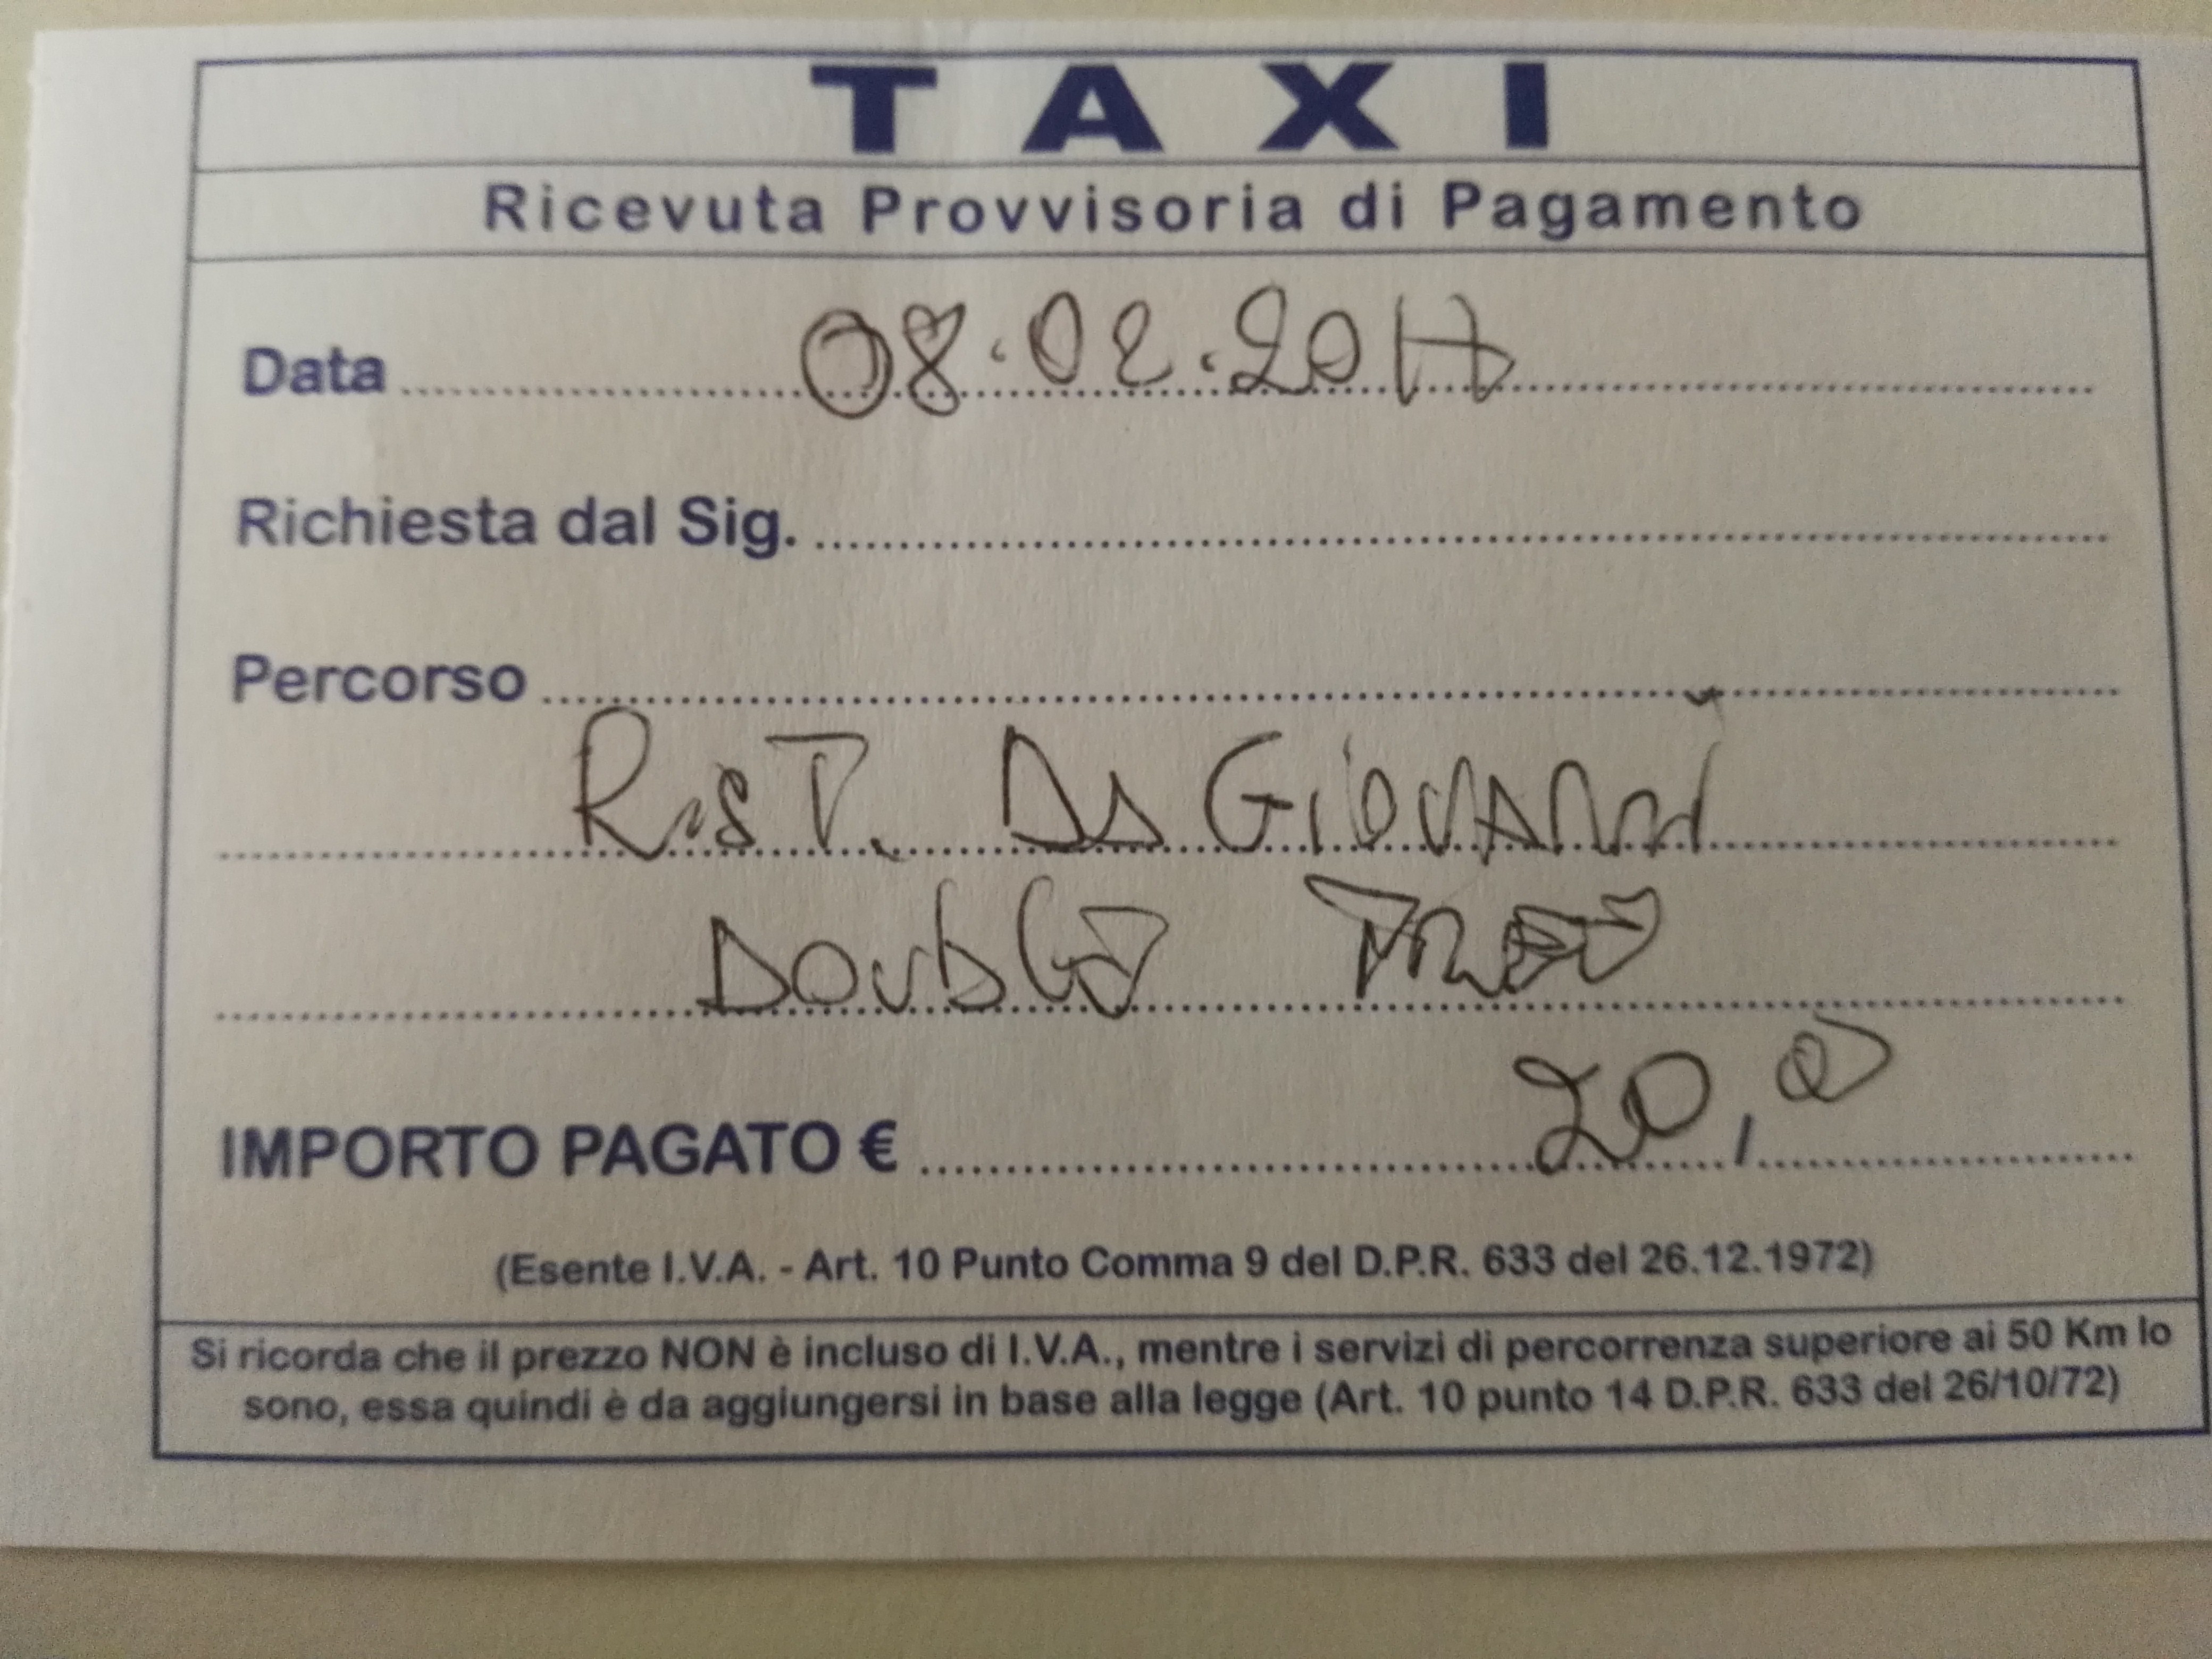 TAXI
Ricevuta Provvisoria di Pagamento
Data 08.02.2017
Richiesta dal Sig.
Percorso
Rist. Da Giovanni
Double Tree
IMPORTO PAGATO € 20,0
(Esente I.V.A. - Art. 10 Punto Comma 9 del D.P.R. 633 del 26.12.1972)
Si ricorda che il prezzo NON è incluso di I.V.A., mentre i servizi di percorrenza superiore ai 50 Km lo
sono, essa quindi è da aggiungersi in base alla legge (Art. 10 punto 14 D.P.R. 633 del 26/10/72)